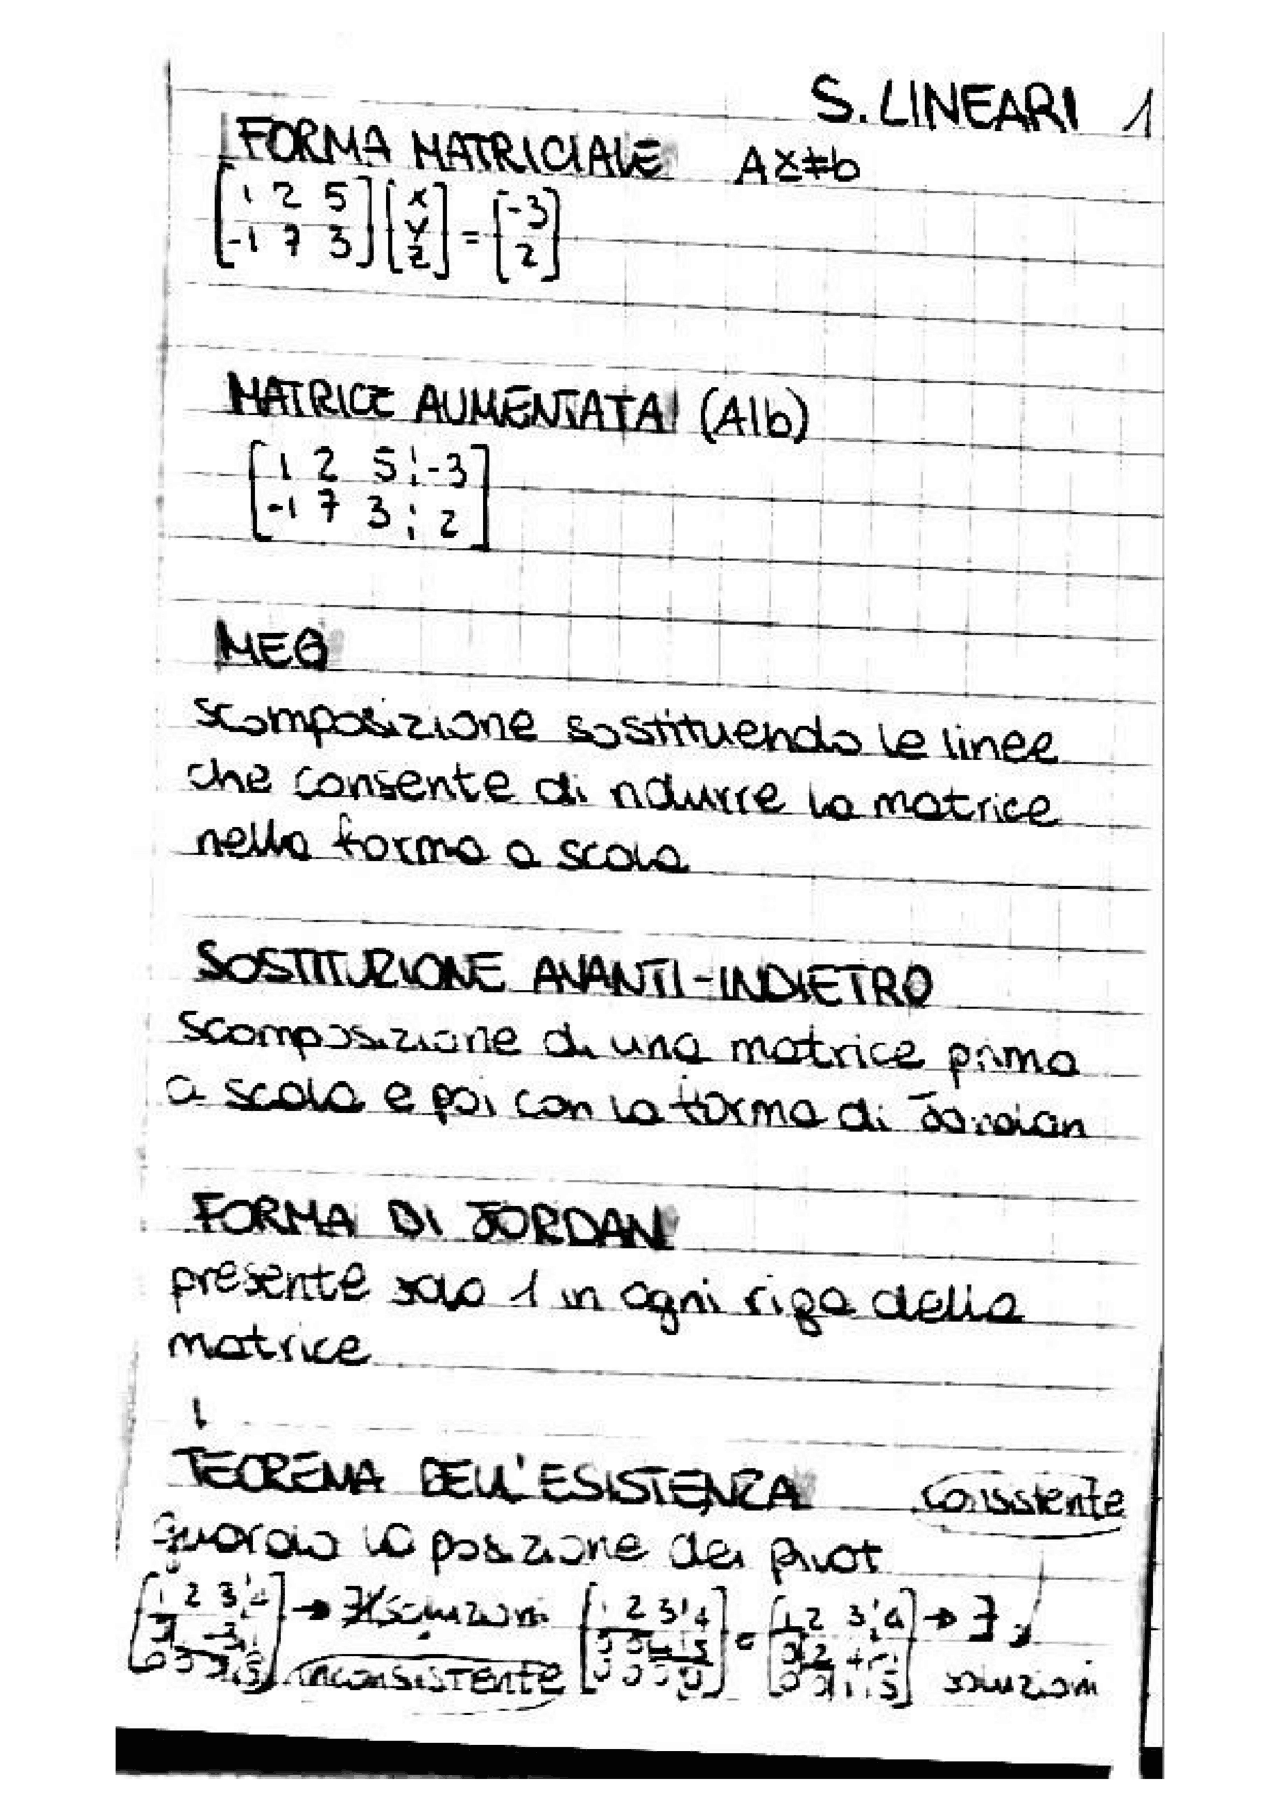 S. LINEARI 1
FORMA MATRICIALE Ax=b
[1 2 5] [x] = [-3]
[-1 7 3] [y] [2]
[z]
MATRICE AUMENTATA (A|b)
[1 2 5 ¦ -3]
[-1 7 3 ¦ 2]
MEG
scomposizione sostituendo le linee
che consente di ridurre la matrice
nella forma a scala
SOSTITUZIONE AVANTI-INDIETRO
scomposizione di una matrice prima
a scala e poi con la forma di Jordan
FORMA DI JORDAN
presente solo 1 in ogni riga della
matrice
TEOREMA DELL'ESISTENZA consistente
guardo la posizione dei pivot
[1 2 3 ¦ 4] → ∄ soluzioni [1 2 3 ¦ 4] o [1 2 3 ¦ 4] → ∃
inconsistente soluzioni